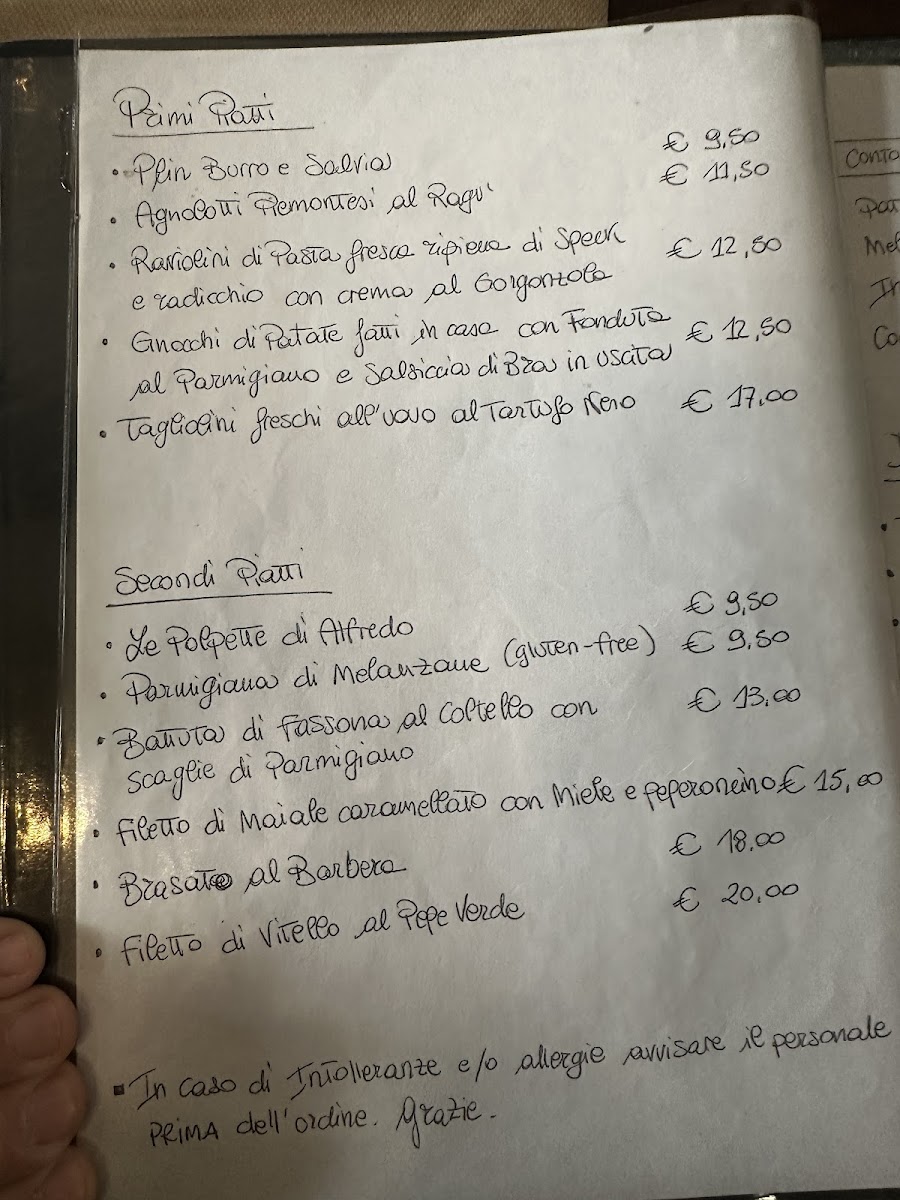 Primi Piatti
• Plin Burro e Salvia € 9,50
• Agnolotti Piemontesi al Ragu' € 11,50
• Raviolini di Pasta fresca ripiena di Speck € 12,50
e radicchio con crema al Gorgonzola
• Gnocchi di Patate fatti in casa con Fonduta € 12,50
al Parmigiano e Salsiccia di Bra in uscita
• Tagliolini freschi all'uovo al Tartufo Nero € 17,00
Secondi Piatti
• Le Polpette di Alfredo € 9,50
• Parmigiana di Melanzane (gluten-free) € 9,50
• Battuta di Fassona al Coltello con € 13,00
scaglie di Parmigiano
• Filetto di Maiale caramellato con Miele e peperoncino € 15,00
• Brasato al Barbera € 18,00
• Filetto di Vitello al Pepe Verde € 20,00
▪ In caso di Intolleranze e/o allergie avvisare il personale
PRIMA dell'ordine. Grazie.